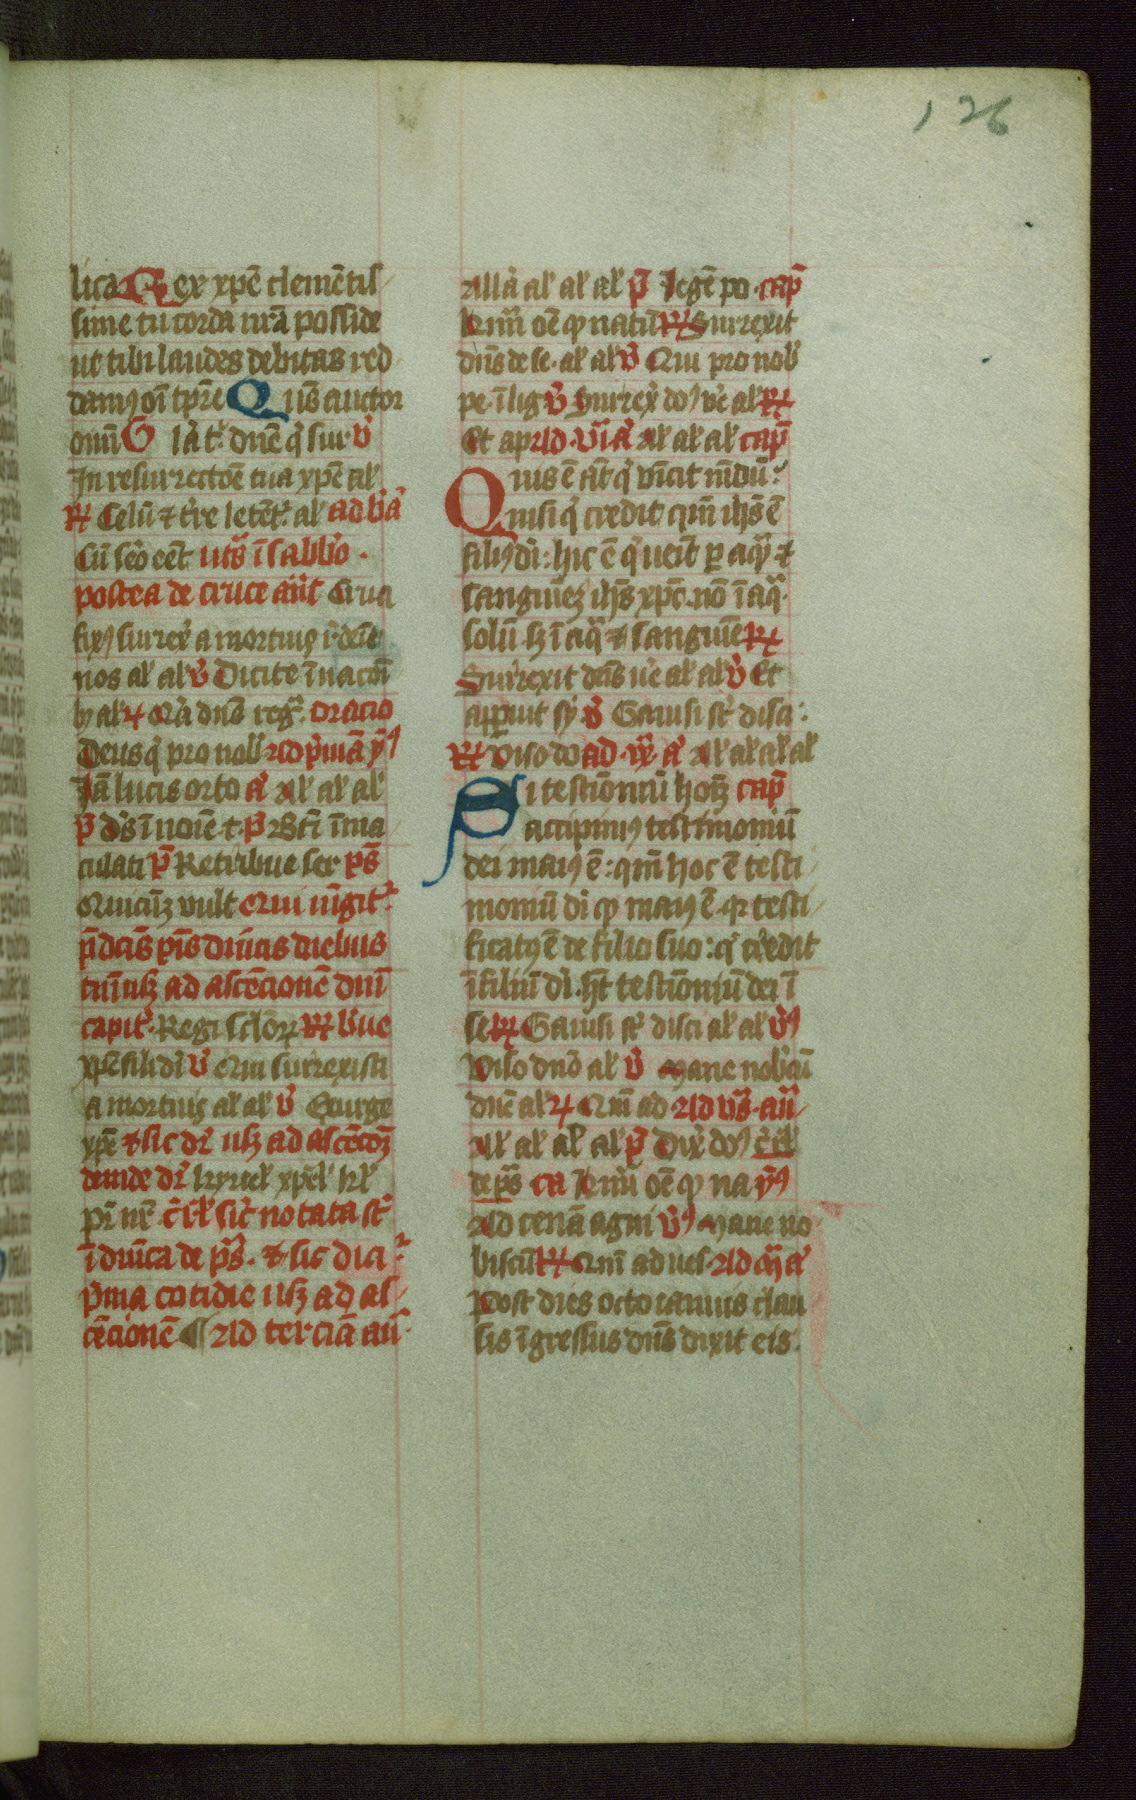 126
lica Rex xp̄e clemētis
sime tu corda nr̄a posside
ut tibi laudes debitas red
damꝯ oī tp̄re Q̄s auctor
om̄ G la t' dn̄e q' sur v̄
In resurrectōe tua xp̄e al'
R Celū ⁊ t're letēt' al' ad b'a
Cū sero eēt ut s' ī sabb'o
postea de cruce añt Cruci
fixꝯ surrex' a mortuis
nos al' al' v̄ Dicite ī nacōi
bꝯ al' ꝶ Q'a dn̄s reg' oracio
Deus q' pro nob' Ad p'mā
Iā lucis orto a' Al' al' al'
p̄ d's ī noīe t p̄ Bt̄i īma
culati p̄ Retribue ser p̄s
Quicūꝫ vult
p̄dcīs p̄is diuīcis diebus
ad ascēcionē dn̄i
capit' Regi sc̄lorꝝ R b'ue
xp̄e fili di' v̄ Qui surrexisti
a mortuis al' al' v̄ Exurge
xp̄e ⁊ sic dr̄ usꝫ ad ascēcōꝫ
deinde dr̄ kyriel' xp̄el' k'l'
pr̄ nr̄ sic' notata st̄
ī dn̄ica de p̄s ⁊ sic dici'
p'ma cotidie usꝫ ad as
cēcionē ¶ Ad terciā an̄
Alla al' al' al' p̄ legē po cap̄
Om̄ oē ꝙ natū R Surrexit
dn̄s de se al' al' v̄ Qui pro nob'
pe ī lig v̄ Surrex' doꝯ ve' al' R
Et ap Ad vi a' Al' al' al' cap̄
Quis ē āt q' vīcit mūdū
nisi q' credit qm̄ ih̄s ē
filiꝯ di' hic ē q' ueīt p aqꝫ ⁊
sanguinēꝫ ih̄s xp̄c nō ī aq'
solū sꝫ ī aq' ⁊ sanguīe R
Surrexit dn̄s ue' al' al' v̄ Et
apparuit sy' v̄ Gauisi st̄ disci
R Viso do ad ix a' Al' al' al' al'
Si testimoniū hoīꝫ cap̄
accipimꝯ testimoniū
dei maiꝯ ē qm̄ hoc ē testi
moniū di' ꝙ maiꝯ ē qr testi
ficatꝯ ē de filio suo q' credit
ī filiū di' h̄t testimoniū dei ī
se R Gauisi st̄ disci al' al' v̄
Viso dn̄o al' v̄ Mane nob'cū
dn̄e al' ꝶ Qm̄ ad Ad vs̄ an̄
All al' al' al' p̄ Dix' doꝯ
de p̄s ca Om̄ oē ꝙ na ym̄ꝯ
Ad cenā agni v̄ Mane no
biscū R Qm̄ ad ues Ad m̄ a'
Post dies octo ianuis clau
sis īgressus dn̄s dixit eis